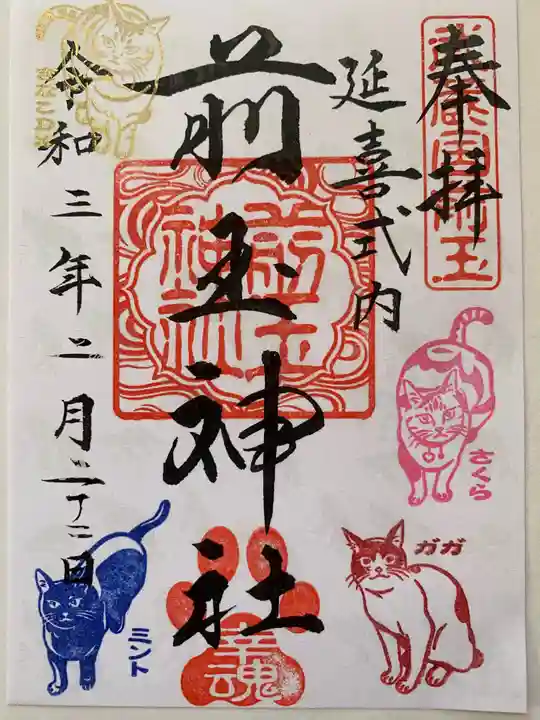 奉拝
延喜式内
前玉神社
令和三年二月二十二日
武蔵国埼玉
前玉神社
幸魂
さくら
ガガ
ミント